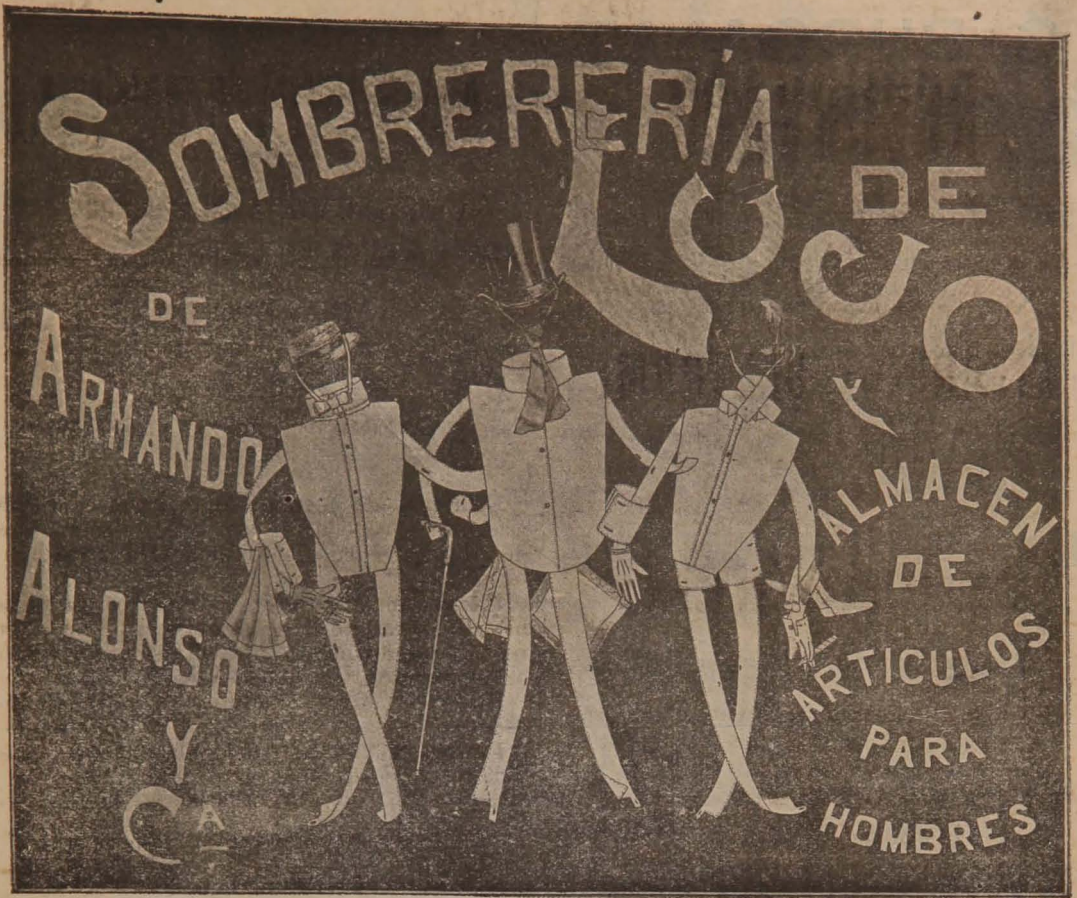 SOMBRERERÍA DE
LUJO
DE
ARMANDO
ALONSO
Y
Cª
Y
ALMACEN
DE
ARTICULOS
PARA
HOMBRES